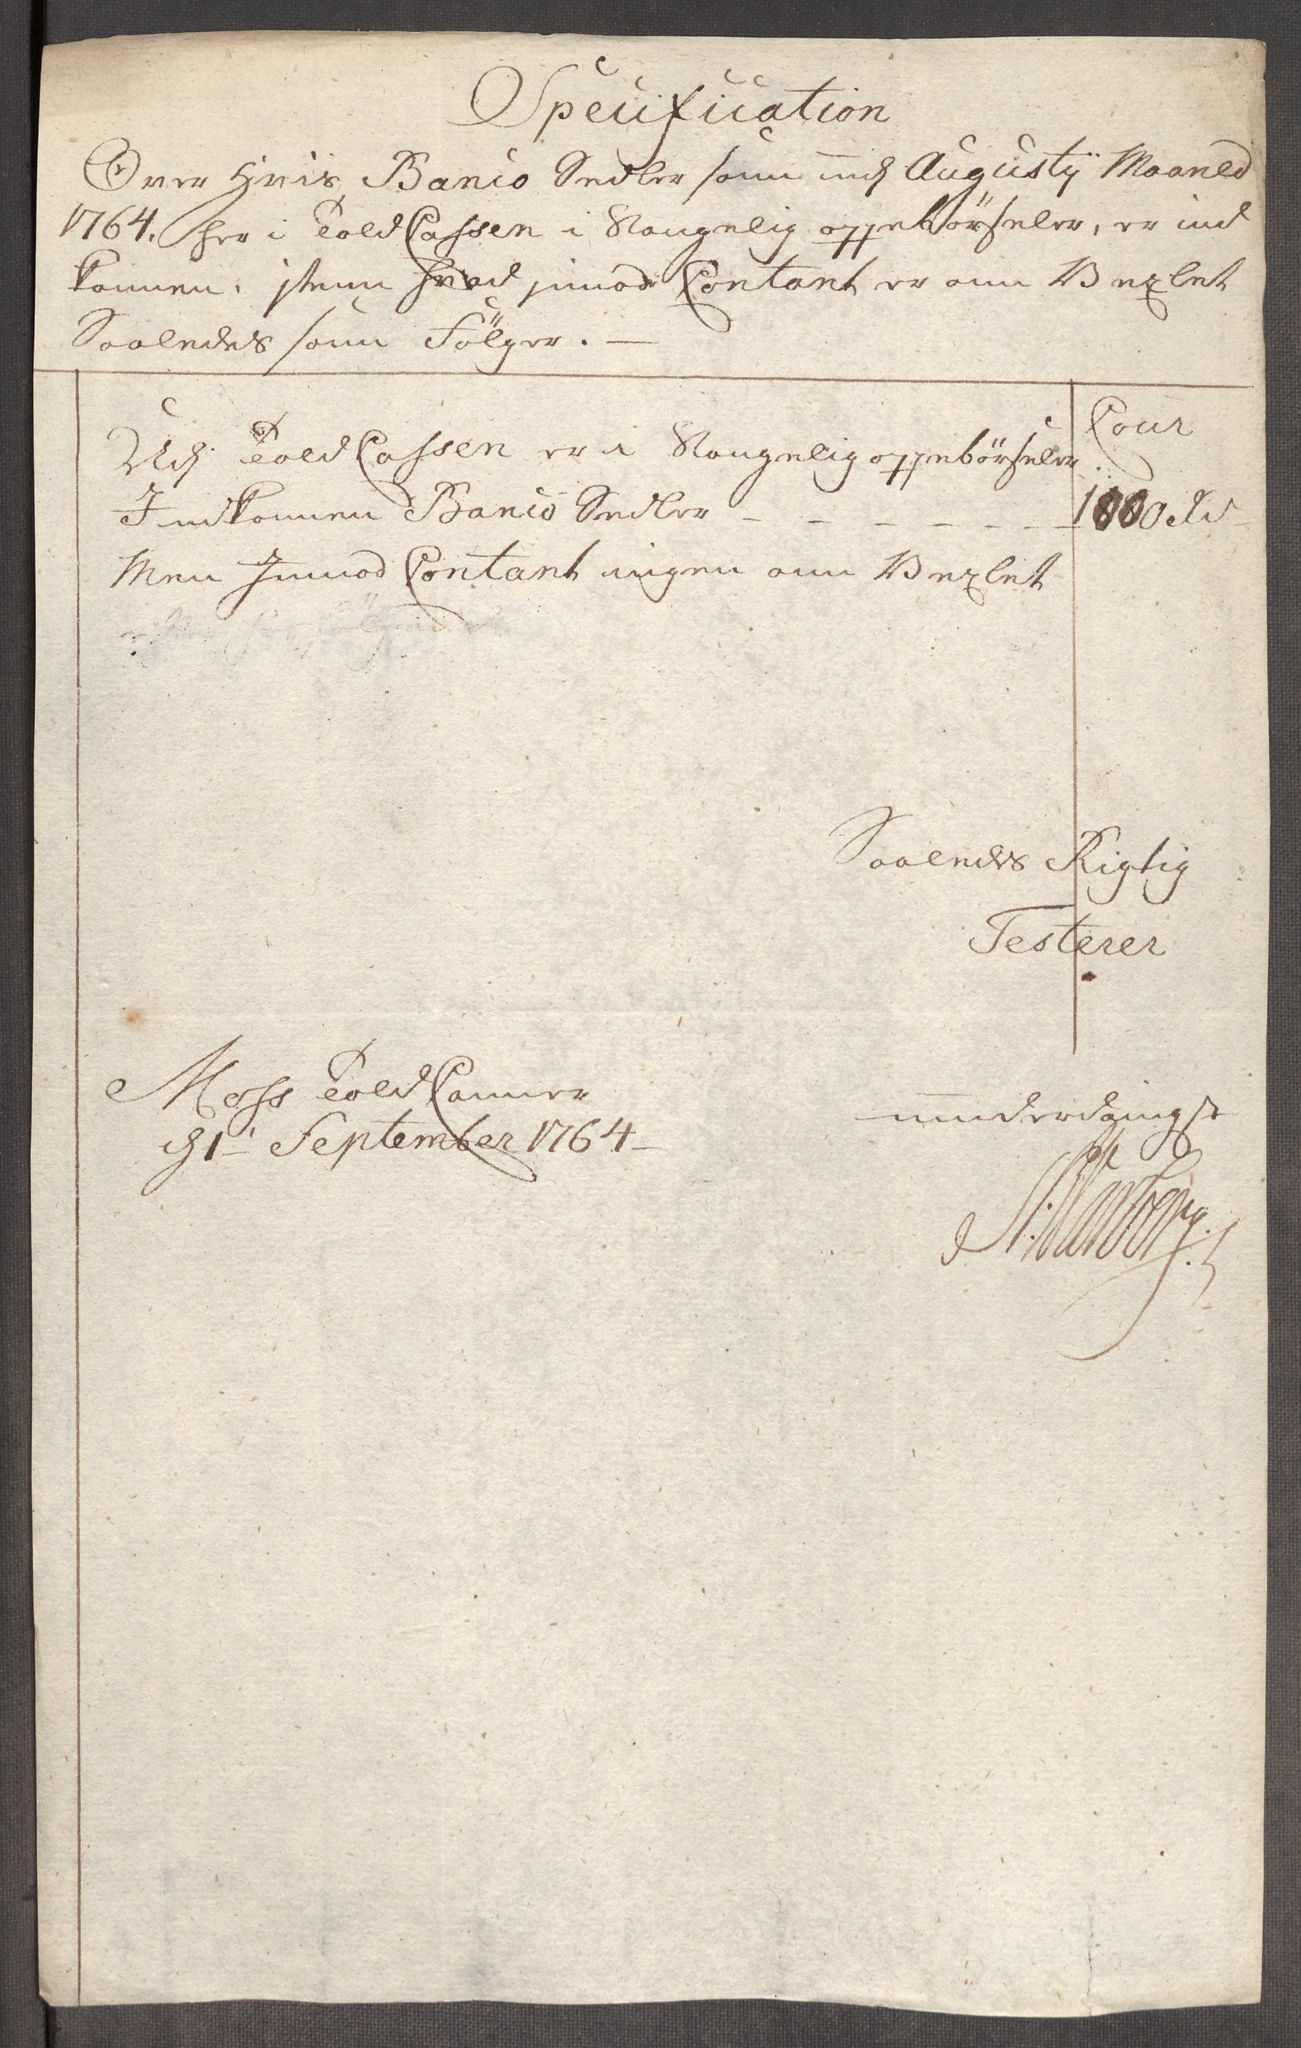 Specification
Over Hvis Banco Sedler som udj Augusty Maaned
1764. her i Told Cassen i Naugelig oppebörseler, er ind
kommen, item hvad jmod Contant er om Vexlet
Saaledes som Fölger. —
Cour
Udj Told Cassen er i Naugelig oppebörseler
Indkommen Banco Sedler - - - - - - - 1000 Rd
Men Jmod Contant ingen om Vexlet
Saaledes Rigtig
Testerer
Moss Told Cammer
d 1 September 1764 —
underdanigst